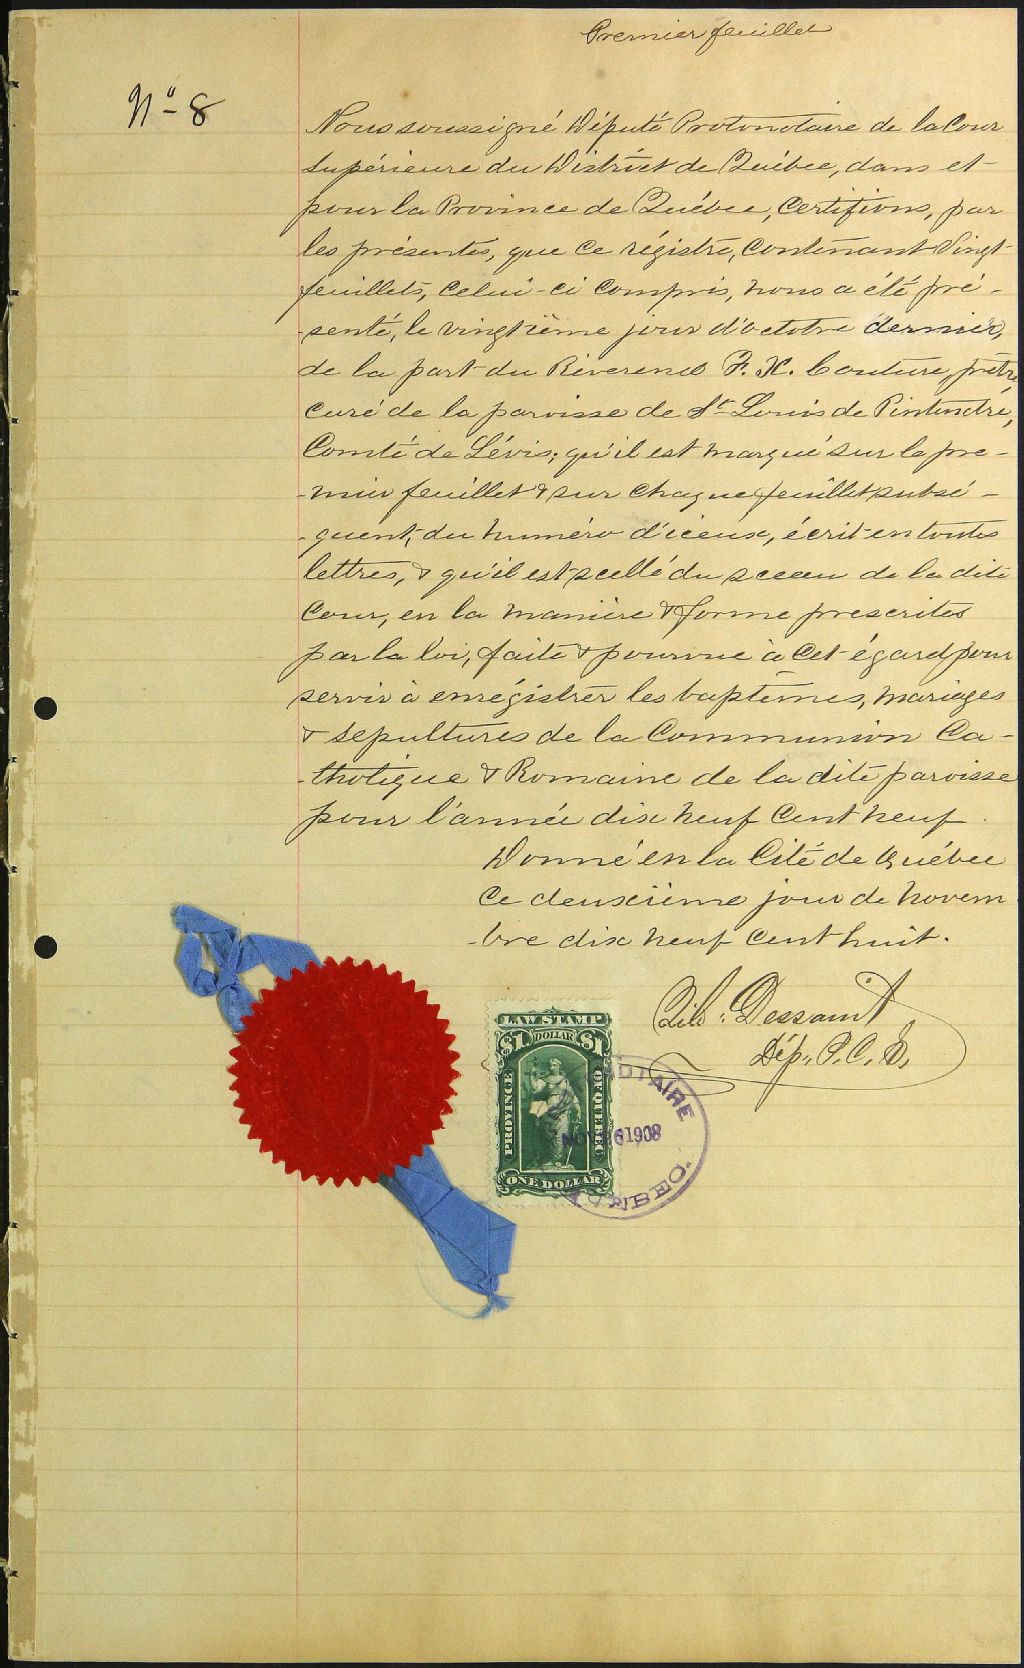 Premier feuillet
No 8
Nous soussigné Député Protonotaire de la Cour
Supérieure du District de Québec, dans et
pour la Province de Québec, certifions, par
les présentes, que ce régistre, contenant vingt
feuillets, celui-ci compris, nous a été pré-
-senté, le vingtième jour d'octobre dernier,
de la part du Révérend F. X. Couture, prêtre
curé de la paroisse de St Louis de Pintendre,
Comté de Lévis; qu'il est marqué sur le pre-
-mier feuillet & sur chaque feuillet subsé-
-quent, du numéro d'iceux, écrit en toutes
lettres, & qu'il est scellé du sceau de la dite
Cour, en la manière & forme prescrites
par la loi, faite & pourvue à cet égard pour
servir à enrégistrer les baptêmes, mariages
& sépultures de la Communion Ca-
-tholique & Romaine de la dite paroisse
pour l'année dix neuf cent neuf.
Donné en la Cité de Québec
ce deuxième jour de novem
-bre dix neuf cent huit.
Dessaint
Dép. P. C. S.
LAW STAMP
$1 DOLLAR $1
PROVINCE OF QUEBEC
ONE DOLLAR
NOV 6 1908
QUEBEC.